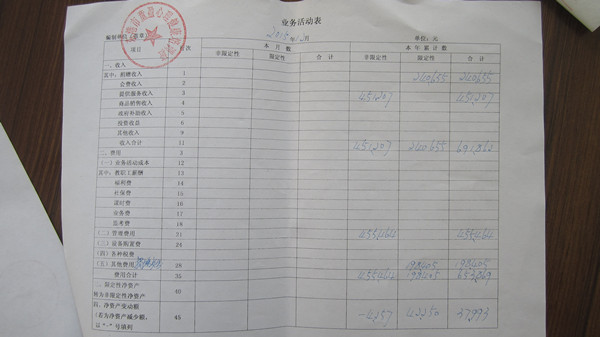 业务活动表
编制单位（盖章） 2015年12月 单位：元
项目 行次 本月数 本年累计数
非限定性 限定性 合计 非限定性 限定性 合计
一、收入
其中：捐赠收入 1 240655 240655
会费收入 2
提供服务收入 3 451207 451,207
商品销售收入 4
政府补助收入 5
投资收益 6
其他收入 9
收入合计 11 451207 240655 691,862
二、费用
（一）业务活动成本 12
其中：教职工薪酬 13
福利费 14
社保费 15
17
业务费
（二）管理费用 21 455464 455464
（三）设备购置费 24
（四）各种税费
（五）其他费用 28 198405 198405
费用合计 35 455464 198405 653,869
三、限定性净资产
转为非限定性净资产 40
四、净资产变动额
（若为净资产减少额， 45 -4257 42250 37,993
以“-”号填列